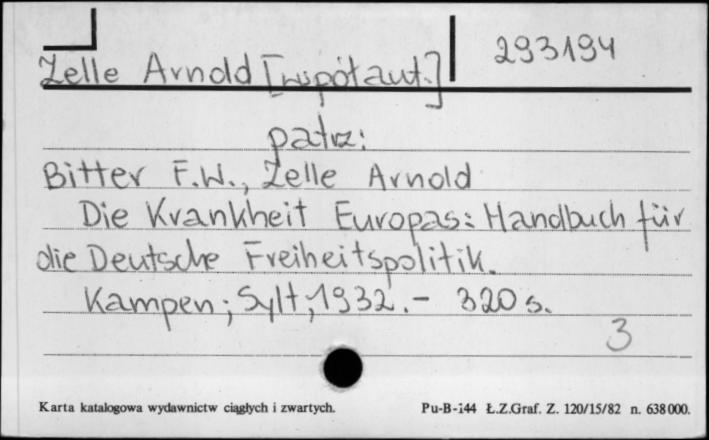 293194
Zelle Arnold [współaut.]
patrz:
Bitter F.W., Zelle Arnold
Die Krankheit Europas: Handbuch für
die Deutsche Freiheitspolitik.
Kampen; Sylt, 1932. - 320 s.
3
Karta katalogowa wydawnictw ciągłych i zwartych. Pu-B-144 Ł.Z.Graf. Z. 120/15/82 n. 638 000.